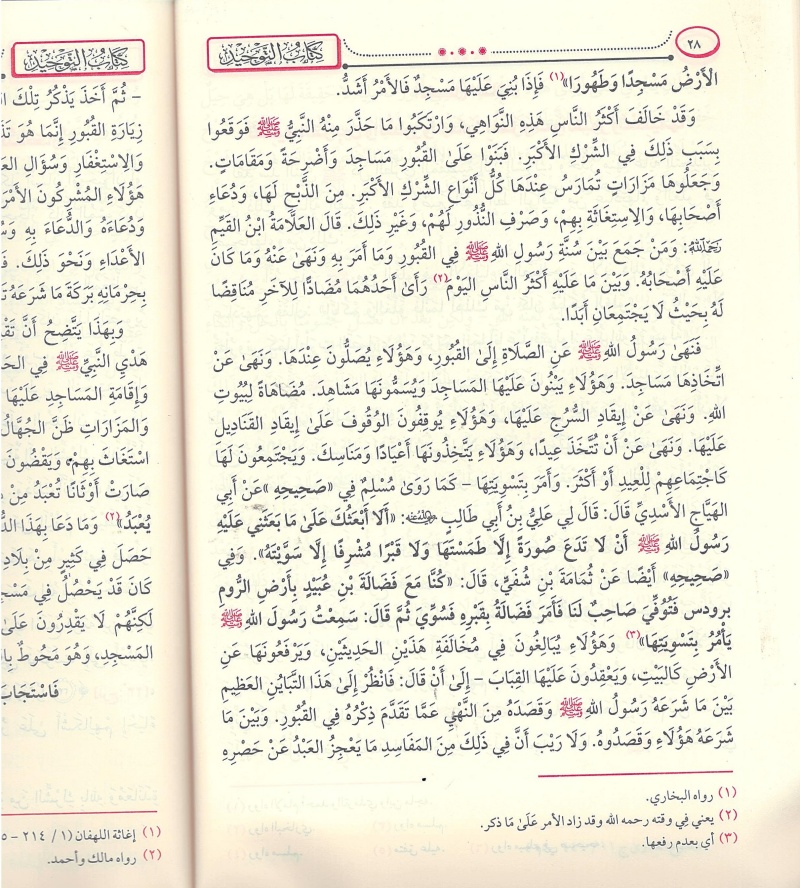 ٢٨
كتاب التوحيد
الأَرْضُ مَسْجِدًا وَطَهُورًا»(١) فَإِذَا بُنِيَ عَلَيْهَا مَسْجِدٌ فَالأَمْرُ أَشَدُّ.
وَقَدْ خَالَفَ أَكْثَرُ النَّاسِ هَذِهِ النَّوَاهِي، وَارْتَكَبُوا مَا حَذَّرَ مِنْهُ النَّبِيُّ ﷺ فَوَقَعُوا
بِسَبَبِ ذَلِكَ فِي الشِّرْكِ الأَكْبَرِ. فَبَنَوْا عَلَىٰ القُبُورِ مَسَاجِدَ وَأَضْرِحَةً وَمَقَامَاتٍ.
وَجَعَلُوهَا مَزَارَاتٍ تُمَارَسُ عِنْدَهَا كُلُّ أَنْوَاعِ الشِّرْكِ الأَكْبَرِ. مِنَ الذَّبْحِ لَهَا، وَدُعَاءِ
أَصْحَابِهَا، وَالاِسْتِغَاثَةِ بِهِمْ، وَصَرْفِ النُّذُورِ لَهُمْ، وَغَيْرِ ذَلِكَ. قَالَ العَلَّامَةُ ابْنُ القَيِّمِ
رَحِمَهُ اللهُ: وَمَنْ جَمَعَ بَيْنَ سُنَّةِ رَسُولِ اللهِ ﷺ فِي القُبُورِ وَمَا أَمَرَ بِهِ وَنَهَىٰ عَنْهُ وَمَا كَانَ
عَلَيْهِ أَصْحَابُهُ. وَبَيْنَ مَا عَلَيْهِ أَكْثَرُ النَّاسِ اليَوْمَ(٢) رَأَىٰ أَحَدَهُمَا مُضَادًّا لِلآخَرِ مُنَاقِضًا
لَهُ بِحَيْثُ لَا يَجْتَمِعَانِ أَبَدًا.
فَنَهَىٰ رَسُولُ اللهِ ﷺ عَنِ الصَّلَاةِ إِلَىٰ القُبُورِ، وَهَؤُلَاءِ يُصَلُّونَ عِنْدَهَا. وَنَهَىٰ عَنْ
اتِّخَاذِهَا مَسَاجِدَ. وَهَؤُلَاءِ يَبْنُونَ عَلَيْهَا المَسَاجِدَ وَيُسَمُّونَهَا مَشَاهِدَ. مُضَاهَاةً لِبُيُوتِ
اللهِ. وَنَهَىٰ عَنْ إِيقَادِ السُّرُجِ عَلَيْهَا، وَهَؤُلَاءِ يُوقِفُونَ الوُقُوفَ عَلَىٰ إِيقَادِ القَنَادِيلِ
عَلَيْهَا. وَنَهَىٰ عَنْ أَنْ تُتَّخَذَ عِيدًا، وَهَؤُلَاءِ يَتَّخِذُونَهَا أَعْيَادًا وَمَنَاسِكَ. وَيَجْتَمِعُونَ لَهَا
كَاجْتِمَاعِهِمْ لِلْعِيدِ أَوْ أَكْثَرَ. وَأَمَرَ بِتَسْوِيَتِهَا – كَمَا رَوَىٰ مُسْلِمٌ فِي «صَحِيحِهِ» عَنْ أَبِي
الهَيَّاجِ الأَسْدِيِّ قَالَ: قَالَ لِي عَلِيُّ بْنُ أَبِي طَالِبٍ رَضِيَ اللهُ عَنْهُ: «أَلَا أَبْعَثُكَ عَلَىٰ مَا بَعَثَنِي عَلَيْهِ
رَسُولُ اللهِ ﷺ أَنْ لَا تَدَعَ صُورَةً إِلَّا طَمَسْتَهَا وَلَا قَبْرًا مُشْرِفًا إِلَّا سَوَّيْتَهُ». وَفِي
«صَحِيحِهِ» أَيْضًا عَنْ ثُمَامَةَ بْنِ شُفَيٍّ، قَالَ: «كُنَّا مَعَ فَضَالَةَ بْنِ عُبَيْدٍ بِأَرْضِ الرُّومِ
برودس فَتُوُفِّيَ صَاحِبٌ لَنَا فَأَمَرَ فَضَالَةُ بِقَبْرِهِ فَسُوِّيَ ثُمَّ قَالَ: سَمِعْتُ رَسُولَ اللهِ ﷺ
يَأْمُرُ بِتَسْوِيَتِهَا»(٣) وَهَؤُلَاءِ يُبَالِغُونَ فِي مُخَالَفَةِ هَذَيْنِ الحَدِيثَيْنِ، وَيَرْفَعُونَهَا عَنِ
الأَرْضِ كَالبَيْتِ، وَيَعْقِدُونَ عَلَيْهَا القِبَابَ – إِلَىٰ أَنْ قَالَ: فَانْظُرْ إِلَىٰ هَذَا التَّبَايُنِ العَظِيمِ
بَيْنَ مَا شَرَعَهُ رَسُولُ اللهِ ﷺ وَقَصَدَهُ مِنَ النَّهْيِ عَمَّا تَقَدَّمَ ذِكْرُهُ فِي القُبُورِ. وَبَيْنَ مَا
شَرَعَهُ هَؤُلَاءِ وَقَصَدُوهُ. وَلَا رَيْبَ أَنَّ فِي ذَلِكَ مِنَ المَفَاسِدِ مَا يَعْجِزُ العَبْدُ عَنْ حَصْرِهِ
(١) رواه البخاري.
(٢) يعني في وقته رحمه الله وقد زاد الأمر عَلَىٰ مَا ذكر.
(٣) أي بعدم رفعها.
كتاب التوحيد
– ثُمَّ أَخَذَ يَذْكُرُ تِلْكَ
زِيَارَةِ القُبُورِ إِنَّمَا هُوَ
وَالاِسْتِغْفَارِ وَسُؤَالِ
هَؤُلَاءِ المُشْرِكُونَ الأَمْرَ
وَدُعَاءَهُ وَالدُّعَاءَ بِهِ
الأَعْدَاءِ وَنَحْوَ ذَلِكَ.
بِحِرْمَانِهِ بَرَكَةَ مَا شَرَعَهُ
وَبِهَذَا يَتَّضِحُ أَنَّ
هَدْيِ النَّبِيِّ ﷺ فِي
وَإِقَامَةِ المَسَاجِدِ عَلَيْهَا
وَالمَزَارَاتِ ظَنَّ الجُهَّالُ
اسْتَغَاثَ بِهِمْ، وَيَقْضُونَ
صَارَتْ أَوْثَانًا تُعْبَدُ مِنْ
يُعْبَدُ»(٢) وَمَا دَعَا بِهَذَا
حَصَلَ فِي كَثِيرٍ مِنْ بِلَادِ
كَانَ قَدْ يَحْصُلُ فِي
لَكِنَّهُمْ لَا يَقْدِرُونَ عَلَىٰ
المَسْجِدِ، وَهُوَ مَحُوطٌ
فَاسْتَجَابَ
(١) إغاثة اللهفان (١ / ٢١٤ –
(٢) رواه مالك وأحمد.